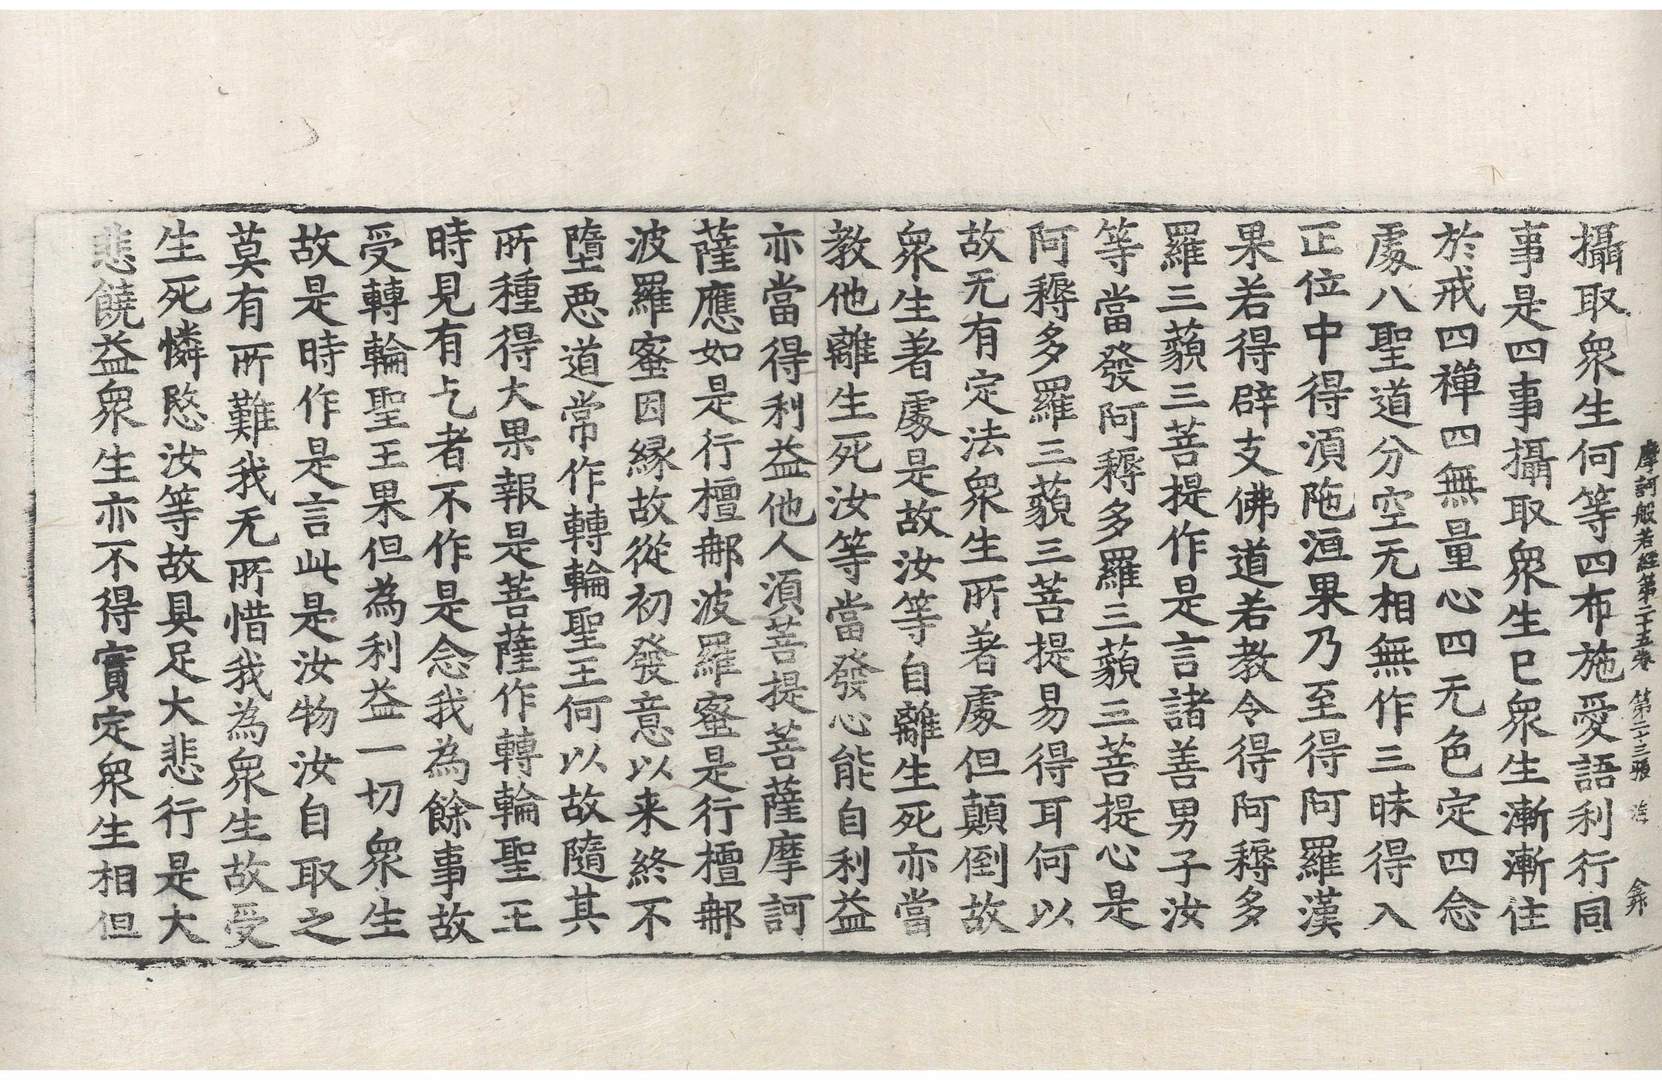 摩訶般若経第二十五卷 第二十三張
攝取衆生何等四布施愛語利行同
事是四事攝取衆生巳衆生漸漸住
於戒四禪四無量心四无色定四念
處八聖道分空无相無作三昧得入
正位中得湏陁洹果乃至得阿羅漢
果若得辟支佛道若教令得阿耨多
羅三藐三菩提作是言諸善男子汝
等當發阿耨多羅三藐三菩提心是
阿耨多羅三藐三菩提易得耳何以
故无有定法衆生所著處但顛倒故
衆生著處是故汝等自離生死亦當
教他離生死汝等當發心能自利益
亦當得利益他人湏菩提菩薩摩訶
薩應如是行檀那波羅蜜是行檀那
波羅蜜因縁故從初發意以来終不
墮悪道常作轉輪聖王何以故隨其
所種得大果報是菩薩作轉輪聖王
時見有乞者不作是念我為餘事故
受轉輪聖王果但為利益一切衆生
故是時作是言此是汝物汝自取之
莫有所難我无所惜我為衆生故受
生死憐愍汝等故具足大悲行是大
悲饒益衆生亦不得實定衆生相但